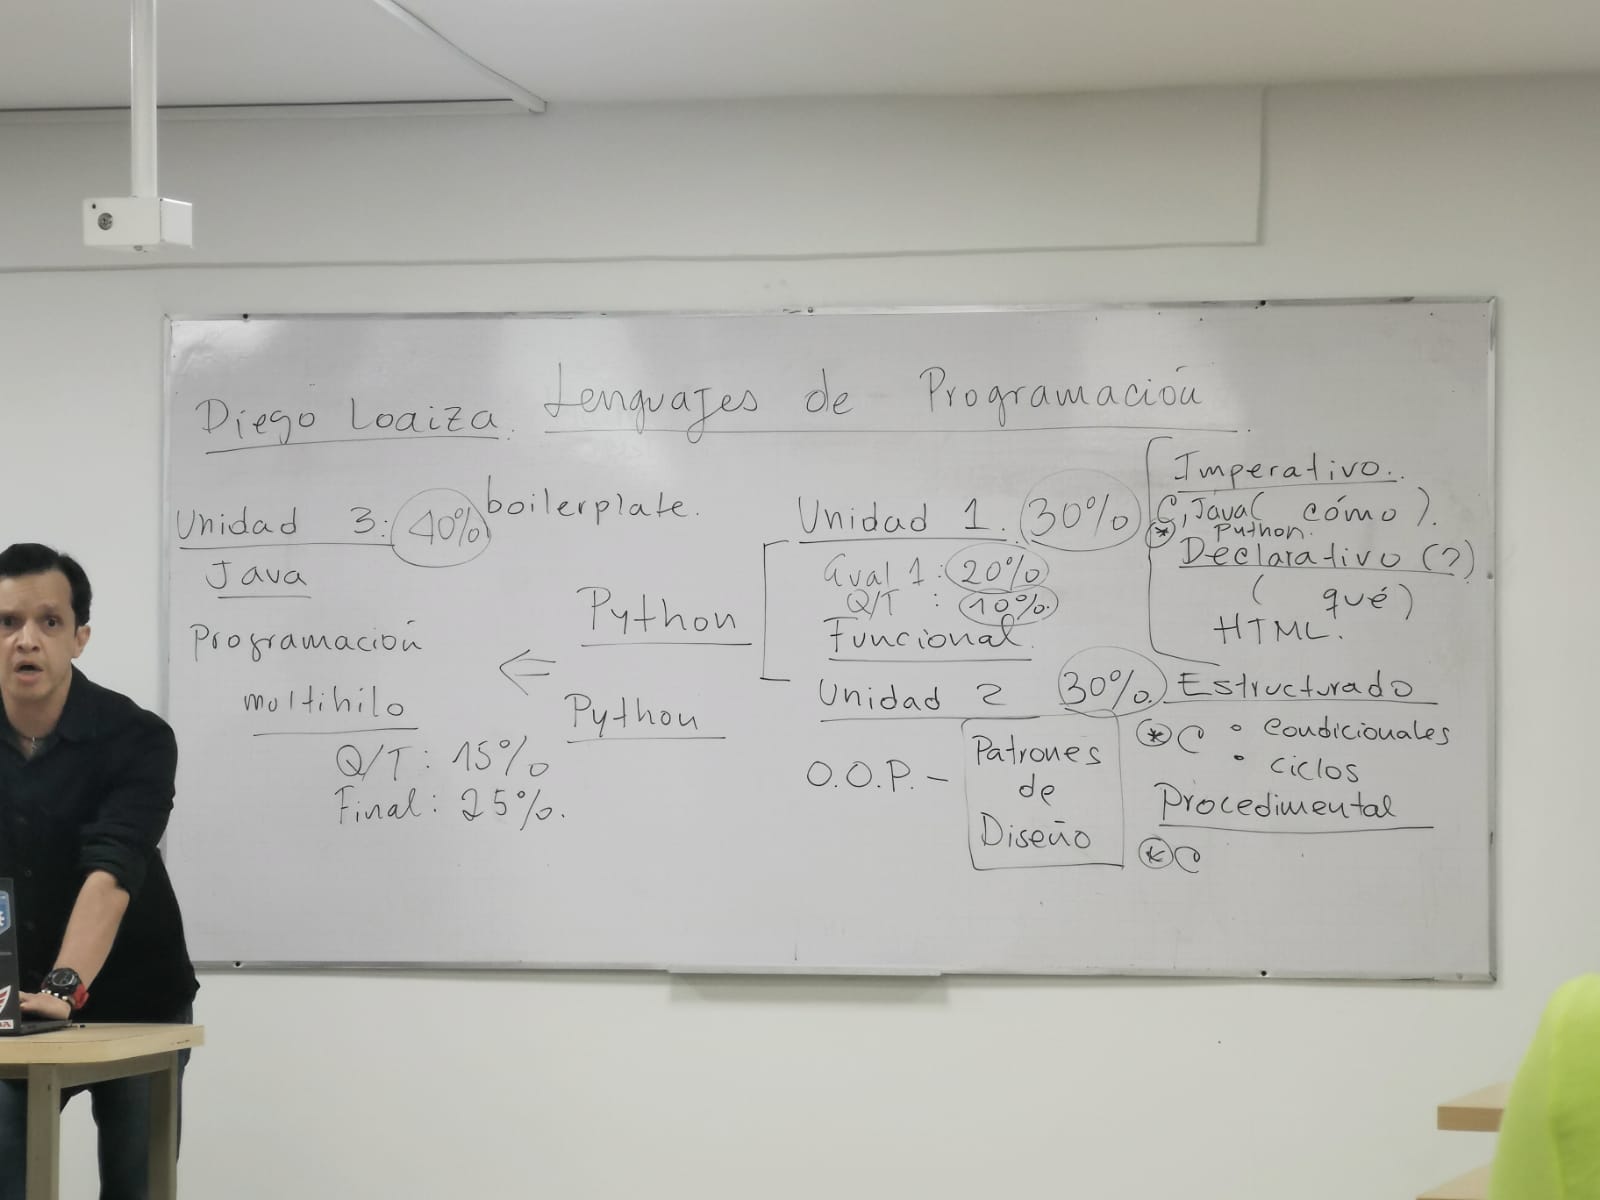 Diego Loaiza.
Lenguajes de Programación
Unidad 3: 40%
boilerplate.
Java
Programación
multihilo
Q/T: 15%
Final: 25%.
Python
Python
Unidad 1. 30%
Eval 1: 20%
Q/T : 10%.
Funcional
Unidad 2 30%.
O.O.P. -
Patrones
de
Diseño
Imperativo..
C, Java( cómo ).
* Python.
Declarativo (?)
( qué)
HTML.
Estructurado
* C • condicionales
• ciclos
Procedimental
* C